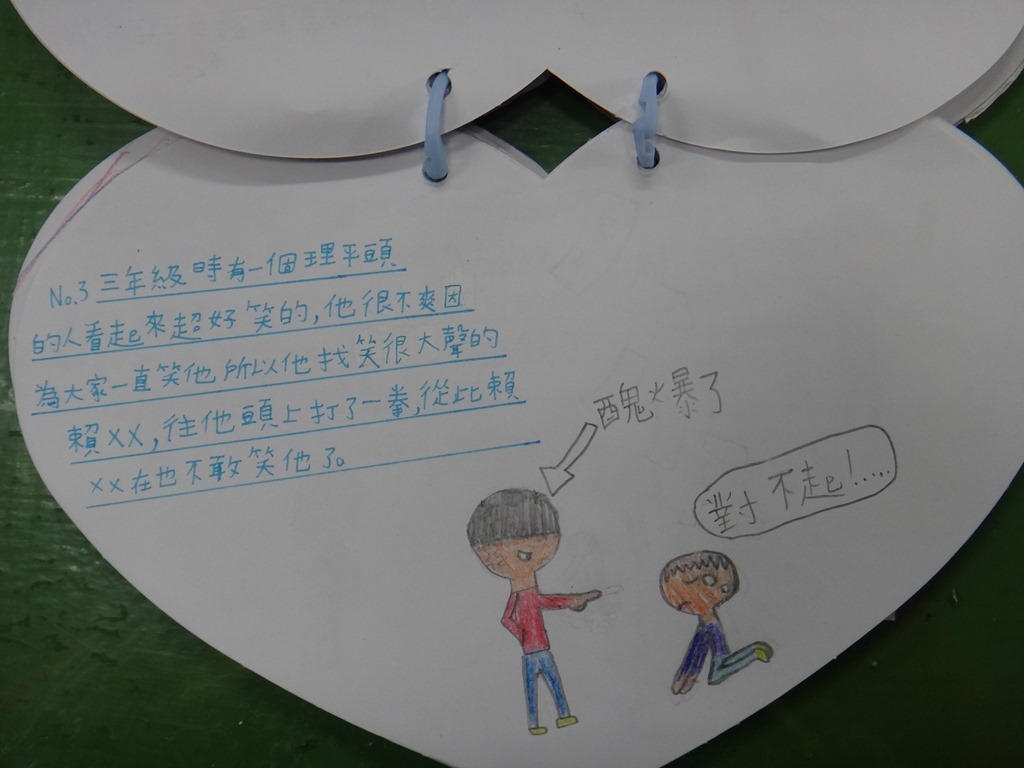 No.3 三年級時有一個理平頭
的人看起來超好笑的,他很不爽因
為大家一直笑他所以他找笑很大聲的
賴XX,往他頭上打了一拳,從此賴
XX在也不敢笑他了。
醜火暴了
對不起!.....